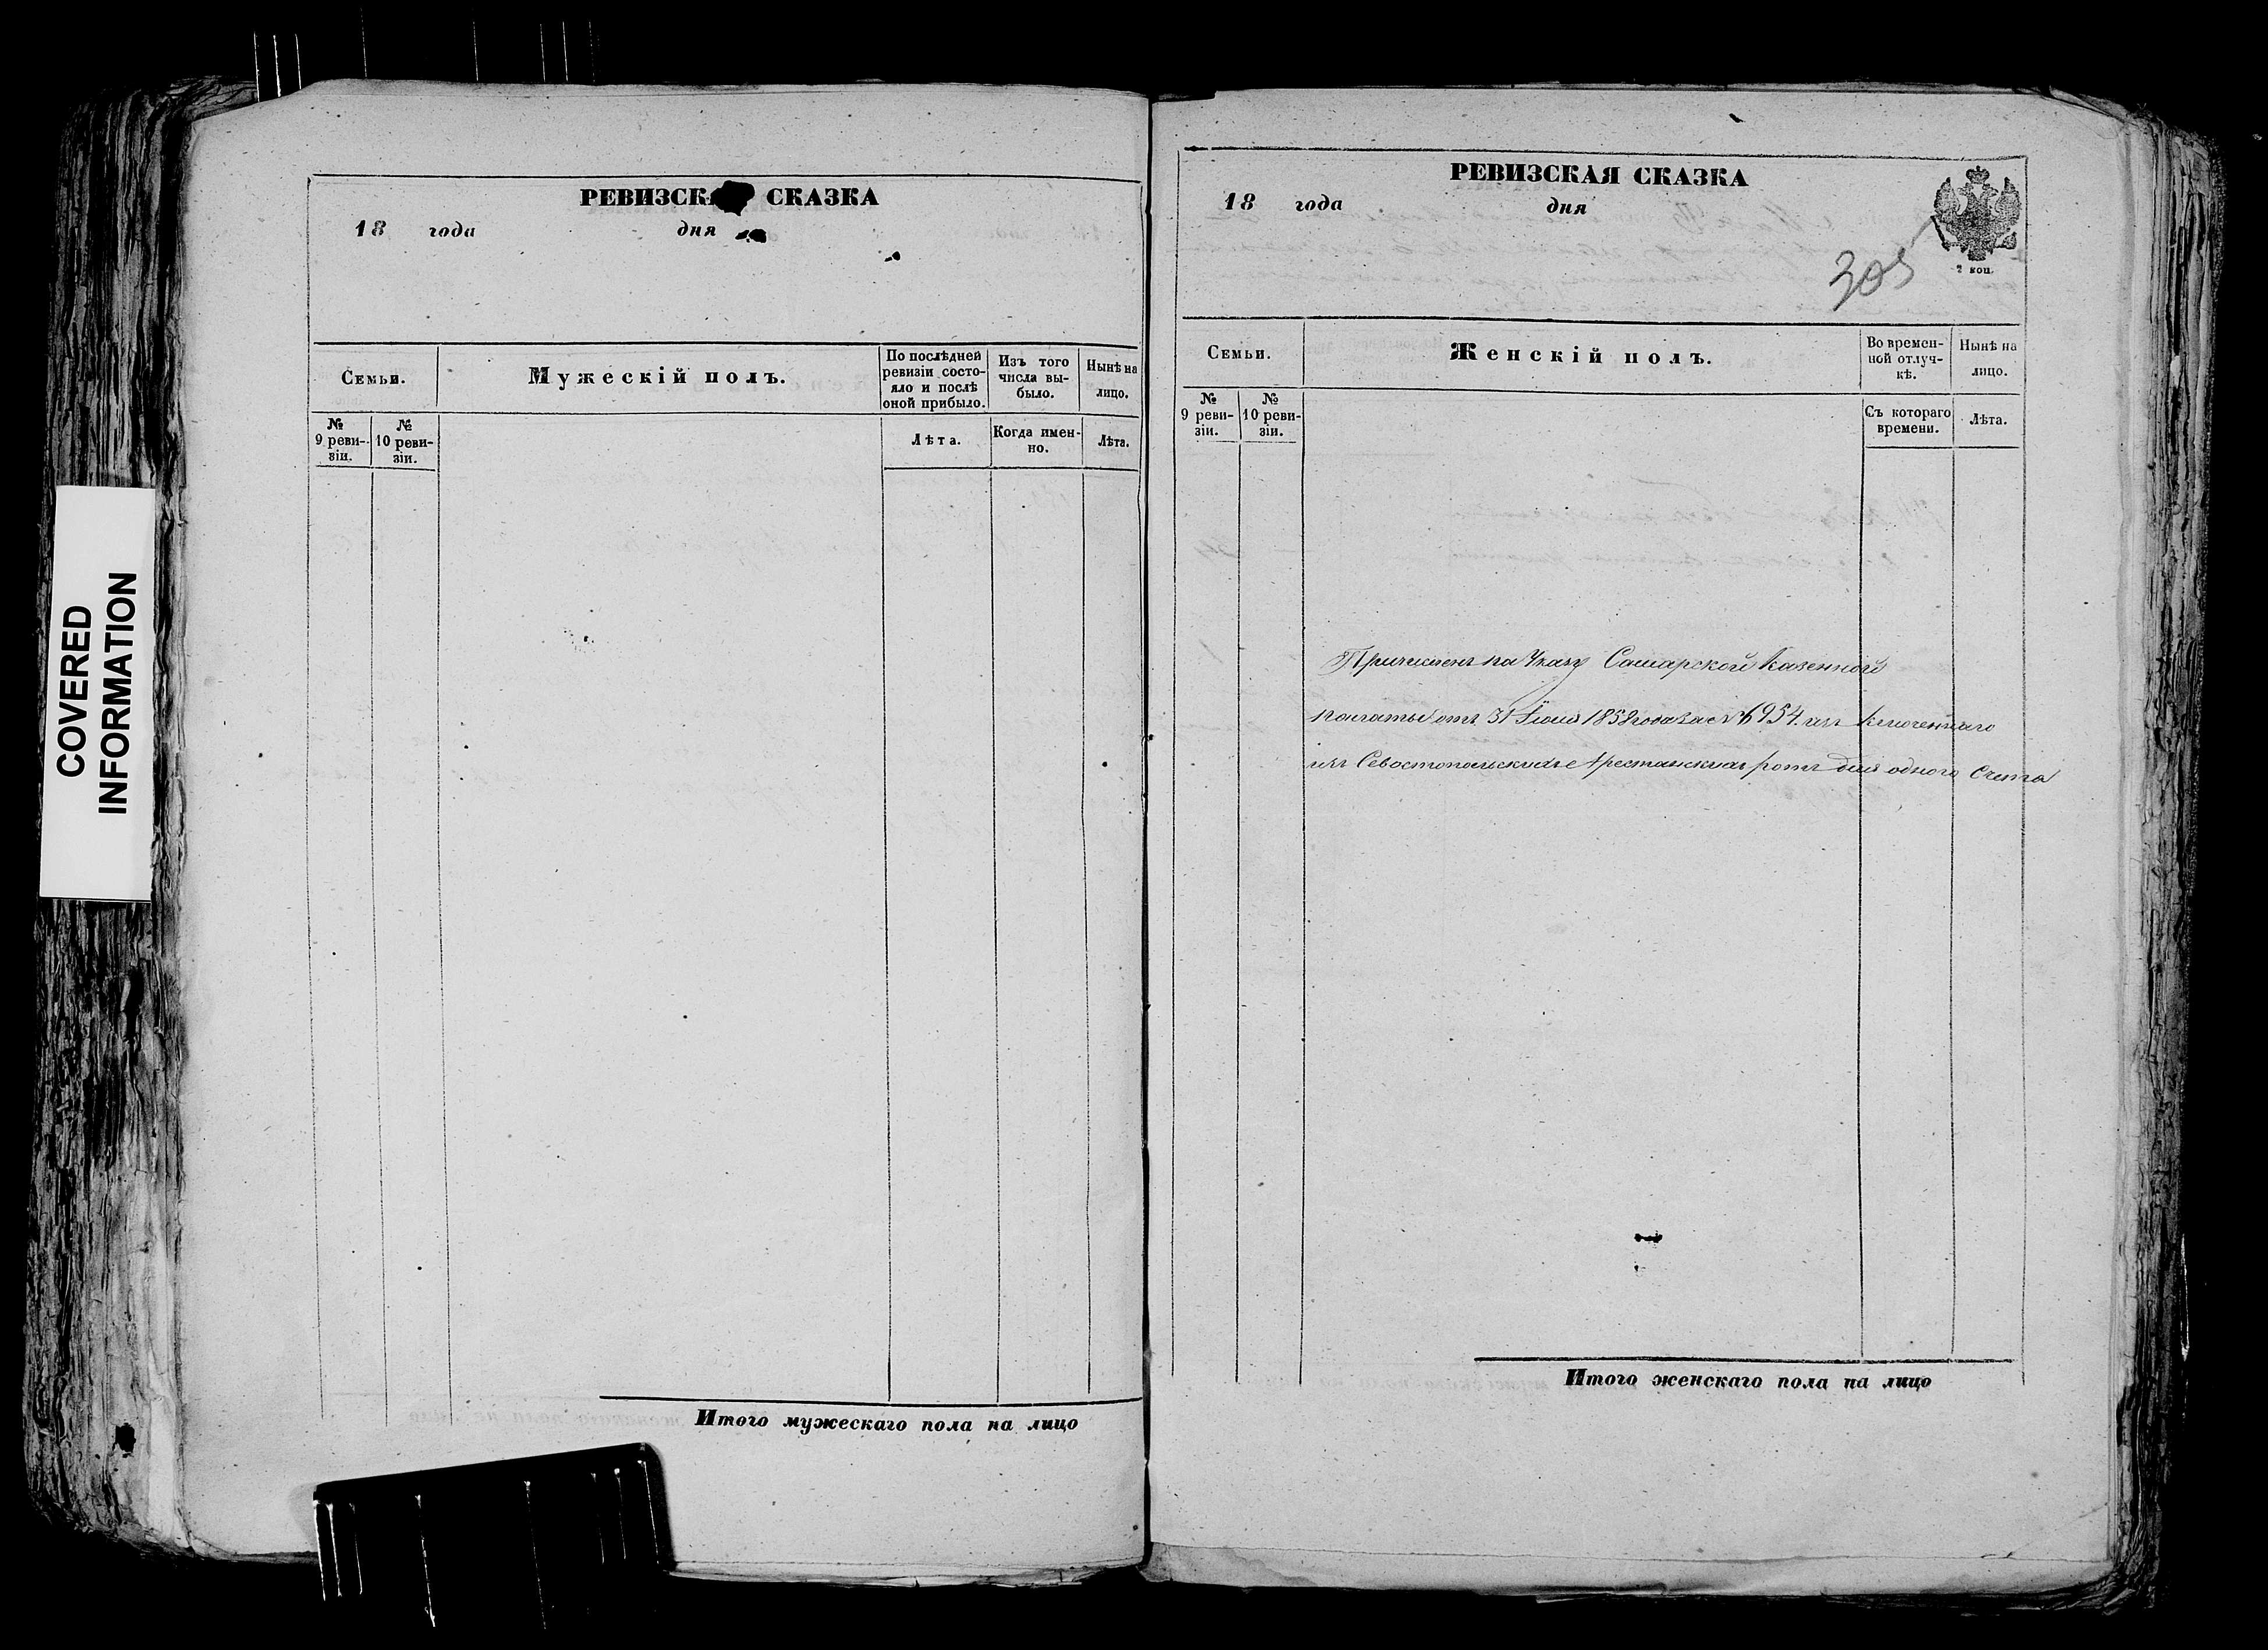 COVERED
INFORMATION
РЕВИЗСКАЯ СКАЗКА
18 года дня
Семьи.
Мужескій полъ.
По послѣдней ревизіи состояло и послѣ оной прибыло.
Изъ того числа выбыло.
Нынѣ на лицо.
№ 9 ревизіи.
№ 10 ревизіи.
Лѣта.
Когда именно.
Лѣта.
Итого мужескаго пола на лицо
РЕВИЗСКАЯ СКАЗКА
18 года дня
2 коп.
305
Семьи.
Женскій полъ.
Во временной отлучкѣ.
Нынѣ на лицо.
№ 9 ревизіи.
№ 10 ревизіи.
Съ котораго времени.
Лѣта.
Причисленъ по Указу Самарской Казенной
палаты отъ 31 Іюля 1858 года за № 6954
изъ Севостопольскихъ Арестанскихъ ротъ для одного Счета
Итого женскаго пола на лицо